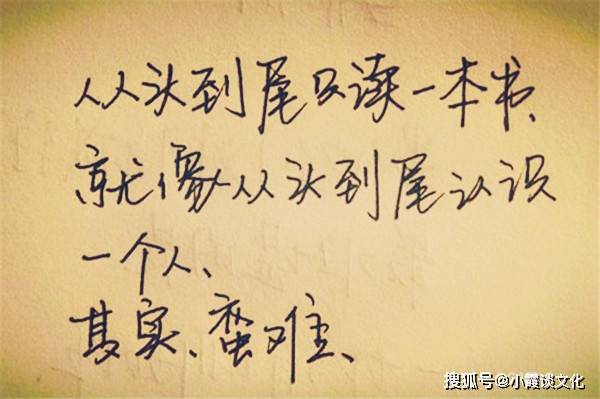 从头到尾只读一本书、
就像从头到尾认识
一个人、
其实、蛮难、
搜狐号@小霞谈文化